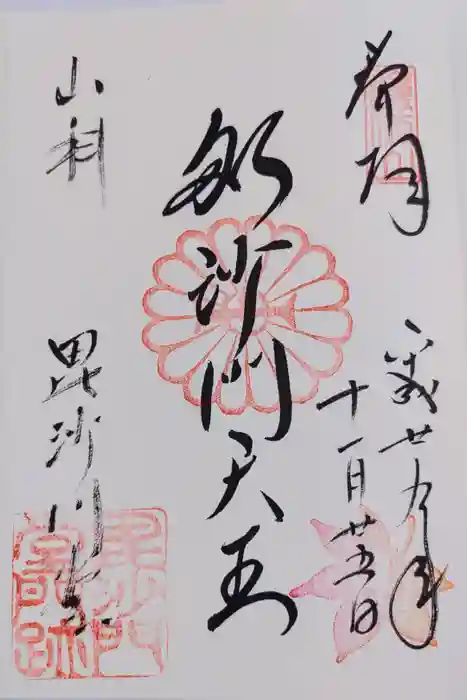 奉拝
平成廿九年
十一月廿五日
毘沙門天王
山科
毘沙門堂